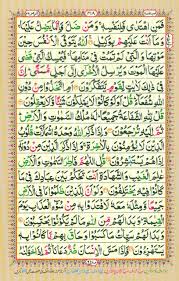 فَمَنِ اهْتَدٰى فَلِنَفْسِهٖ وَمَنْ ضَلَّ فَاِنَّمَا يَضِلُّ عَلَيْهَا
وَمَآ اَنْتَ عَلَيْهِمْ بِوَكِيْلٍ اَللّٰهُ يَتَوَفَّى الْاَنْفُسَ حِيْنَ
مَوْتِهَا وَالَّتِيْ لَمْ تَمُتْ فِيْ مَنَامِهَا فَيُمْسِكُ الَّتِيْ قَضٰى
عَلَيْهَا الْمَوْتَ وَيُرْسِلُ الْاُخْرٰٓى اِلٰٓى اَجَلٍ مُّسَمًّى اِنَّ
فِيْ ذٰلِكَ لَاٰيٰتٍ لِّقَوْمٍ يَّتَفَكَّرُوْنَ اَمِ اتَّخَذُوْا مِنْ دُوْنِ
اللّٰهِ شُفَعَآءَ قُلْ اَوَلَوْ كَانُوْا لَا يَمْلِكُوْنَ شَيْـًٔا وَّلَا
يَعْقِلُوْنَ قُلْ لِّلّٰهِ الشَّفَاعَةُ جَمِيْعًا لَهٗ مُلْكُ السَّمٰوٰتِ وَالْاَرْضِ
ثُمَّ اِلَيْهِ تُرْجَعُوْنَ وَاِذَا ذُكِرَ اللّٰهُ وَحْدَهُ اشْمَاَزَّتْ قُلُوْبُ
الَّذِيْنَ لَا يُؤْمِنُوْنَ بِالْاٰخِرَةِ وَاِذَا ذُكِرَ الَّذِيْنَ مِنْ دُوْنِهٖٓ
اِذَا هُمْ يَسْتَبْشِرُوْنَ قُلِ اللّٰهُمَّ فَاطِرَ السَّمٰوٰتِ وَالْاَرْضِ
عٰلِمَ الْغَيْبِ وَالشَّهَادَةِ اَنْتَ تَحْكُمُ بَيْنَ عِبَادِكَ فِيْ مَا
كَانُوْا فِيْهِ يَخْتَلِفُوْنَ وَلَوْ اَنَّ لِلَّذِيْنَ ظَلَمُوْا مَا فِي الْاَرْضِ
جَمِيْعًا وَّمِثْلَهٗ مَعَهٗ لَافْتَدَوْا بِهٖ مِنْ سُوْٓءِ الْعَذَابِ يَوْمَ
الْقِيٰمَةِ وَبَدَا لَهُمْ مِّنَ اللّٰهِ مَا لَمْ يَكُوْنُوْا يَحْتَسِبُوْنَ
وَبَدَا لَهُمْ سَيِّاٰتُ مَا كَسَبُوْا وَحَاقَ بِهِمْ مَّا كَانُوْا بِهٖ
يَسْتَهْزِءُوْنَ فَاِذَا مَسَّ الْاِنْسَانَ ضُرٌّ دَعَانَا ثُمَّ اِذَا